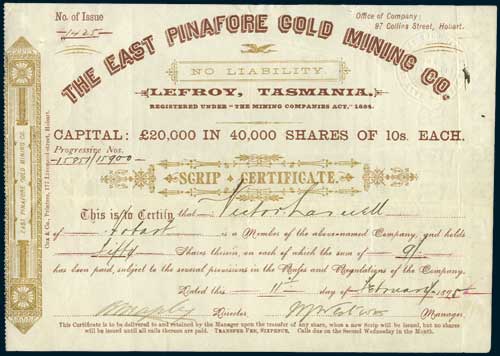 No. of Issue
1425
Office of Company:
97 Collins Street, Hobart.
THE EAST PINAFORE GOLD MINING CO.
NO LIABILITY.
LEFROY, TASMANIA.
REGISTERED UNDER "THE MINING COMPANIES ACT," 1884.
CAPITAL: £20,000 IN 40,000 SHARES OF 10s. EACH.
Progressive Nos.
15851/15900
SCRIP CERTIFICATE.
This is to Certify that Victor
of Hobart is a Member of the abovenamed Company, and holds
fifty Shares therein, on each of which the sum of 9/-
has been paid, subject to the several provisions in the Rules and Regulations of the Company.
Dated this 11th day of February 1895
Director, Manager.
This Certificate is to be delivered to and retained by the Manager upon the transfer of any share, when a new Scrip will be issued, but no shares
will be issued until all calls thereon are paid. TRANSFER FEE, SIXPENCE. Calls due on the Second Wednesday in the Month.
EAST PINAFORE GOLD MINING CO.
Cox & Co., Printers, 177 Liverpool-street, Hobart.